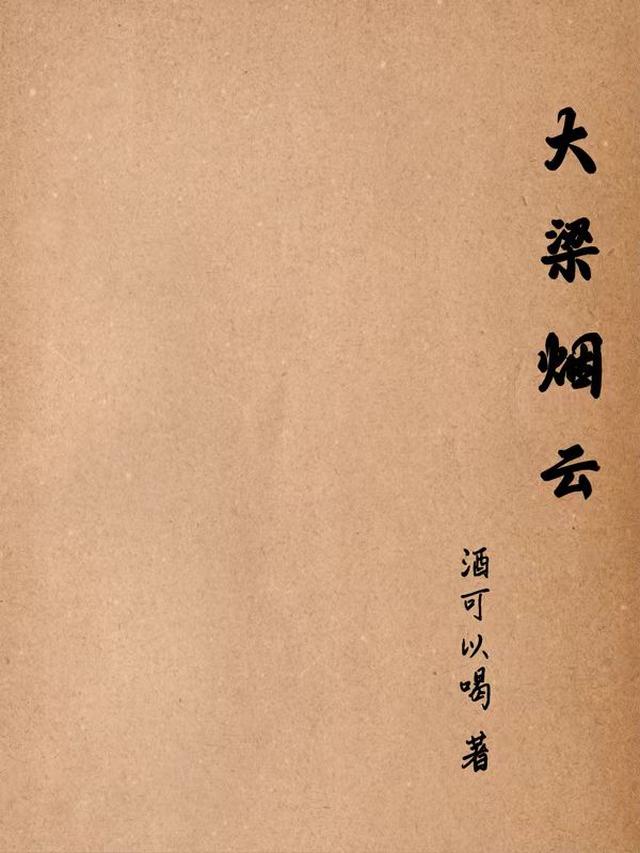 大梁烟云
酒可以喝 著